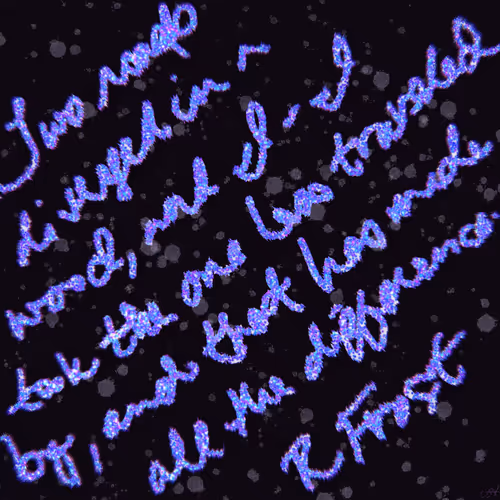 Two roads
diverged in
wood, and I - I
took the one less traveled
by, and that has made
all the difference
R Frost